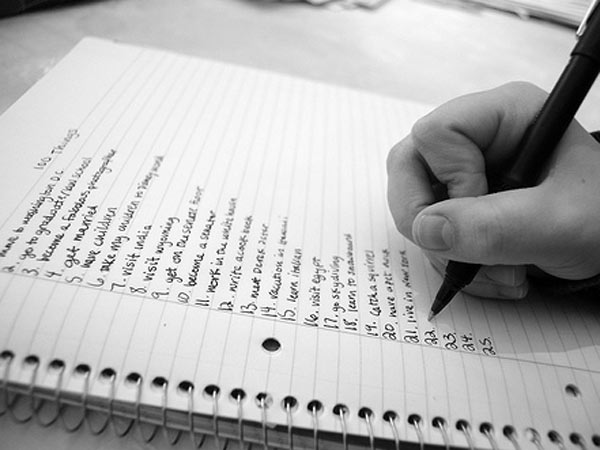 100 Things
move to Washington D.C
2. go to graduate/law school
3. become a fabulous photographer
4. get married
5. have children
6. take my children to disney world
7. visit India
8. visit wyoming
9. get on the senate floor
10. become a senator
11. work in the white house
12. write a book
13. meet Derek Jeter
14. vacation in
15. learn italian
16. visit egypt
17. go skydiving
18. learn to snowboard
19. catch a squirrel
20. have a pet
21. live in new york
22.
23.
24.
25.